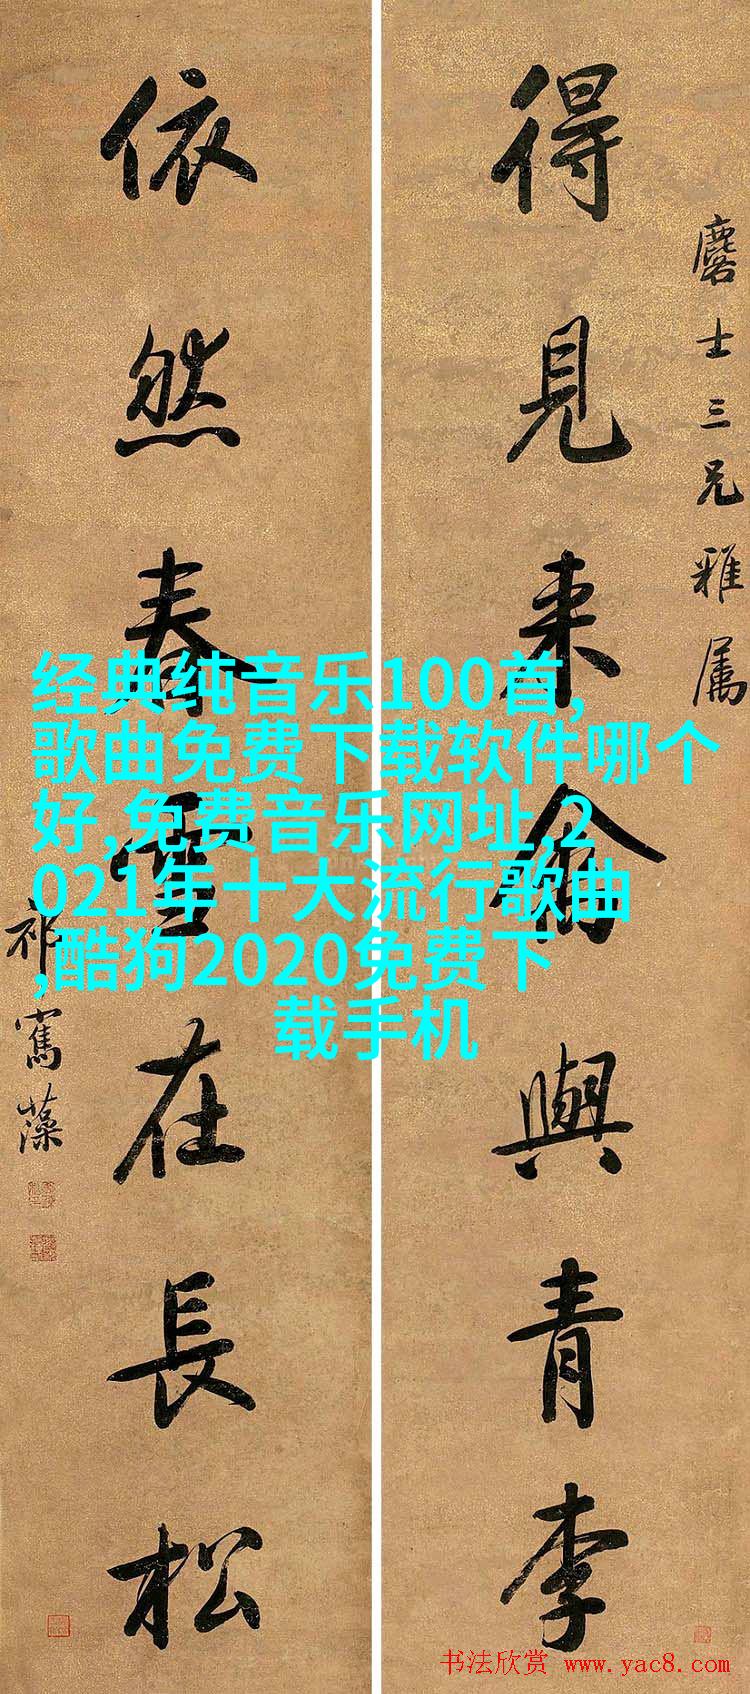 得見來禽與青李
麐士三兄雅屬
依然春雪在長松
祁寯藻
经典纯音乐100首,
歌曲免费下载软件哪个
好,免费音乐网址,2
021年十大流行歌曲
,酷狗2020免费下
载手机
书法欣赏 www.yac8.com